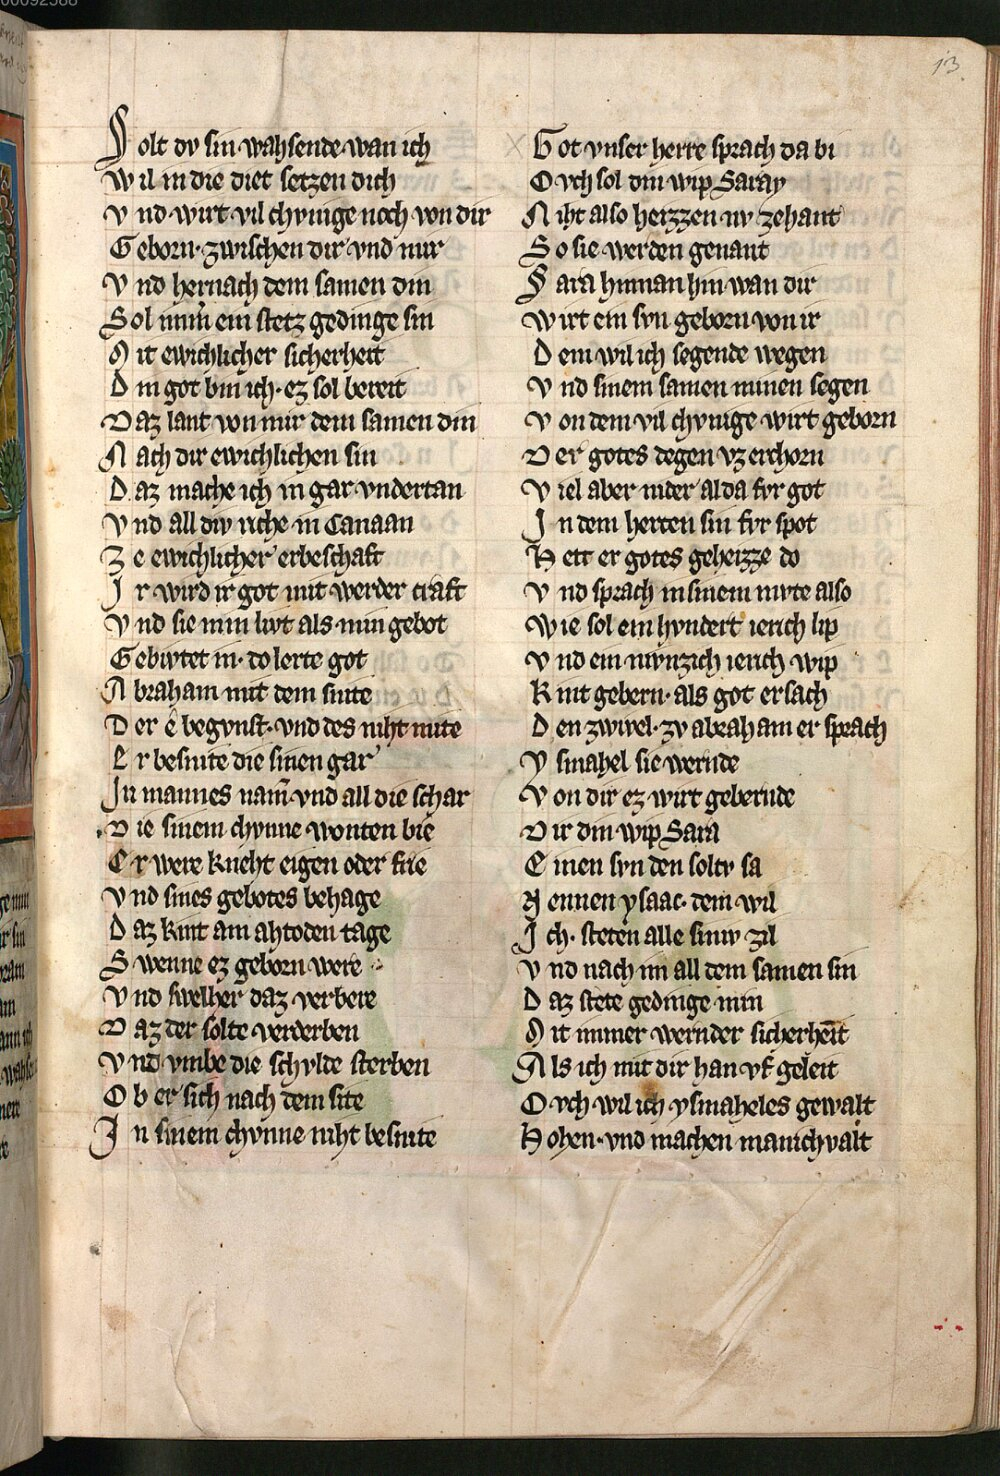 00092588
13.
Solt dv sin wahsende wan ich
Wil in die diet setzen dich
Vnd wirt vil chvnige noch von dir
Geborn· zwischen dir vnd mir
Vnd hernach dem samen din
Sol immer ein stetz gedinge sin
Mit ewichlicher sicherheit
Din got bin ich· ez sol bereit
Daz lant von mir dem samen din
Nach dir ewichlichen sin
Daz mache ich in gar vndertan
Vnd all div riche in Canaan
Ze ewichlicher erbeschaft
Ir wird ir got mit werder craft
Vnd sie min livt als min gebot
Gebivtet in· do lerte got
Abraham mit dem snite
Der ê begvnst· vnd des niht mite
Er besnite die sinen gar
In mannes nam̄ vnd all die schar
Die sinem chvnne wonten bie
Er were kneht eigen oder frie
Vnd sines gebotes behage
Daz kint am ahtoden tage
Swenne ez geborn were
Vnd swelher daz verbere
Daz der solte verderben
Vnd vmbe die schvlde sterben
Ob er sich nach dem site
In sinem chvnne niht besnite
Got vnser herre sprach da bi
Ovch sol din wip Saray
Niht also heizzen nv zehant
So sie werden genant
Sara hinnan hin wan dir
Wirt ein svn geborn von ir
Dem wil ich segende wegen
Vnd sinem samen minen segen
Von dem vil chvnige wirt geborn
Der gotes degen vz erchorn
Viel aber nider alda fvr got
In dem herten sin fvr spot
Hett er gotes geheizze do
Vnd sprach in sinem mvte also
Wie sol ein hvndert ierich lip
Vnd ein nivnzich ierich wip
Kint gebern· als got ersach
Den zwivel· zv abraham er sprach
Ysmahel sie wernde
Von dir ez wirt gebernde
Dir din wip Sara
Einen svn den soltv sa
Nennen ysaac· dem wil
Ich· steten alle siniv zil
Vnd nach im all dem samen sin
Daz stete gedinge min
Mit immer wernder sicherheit
Als ich mit dir han vf geleit
Ovch wil ich ysmaheles gewalt
Hohen· vnd machen manichvalt